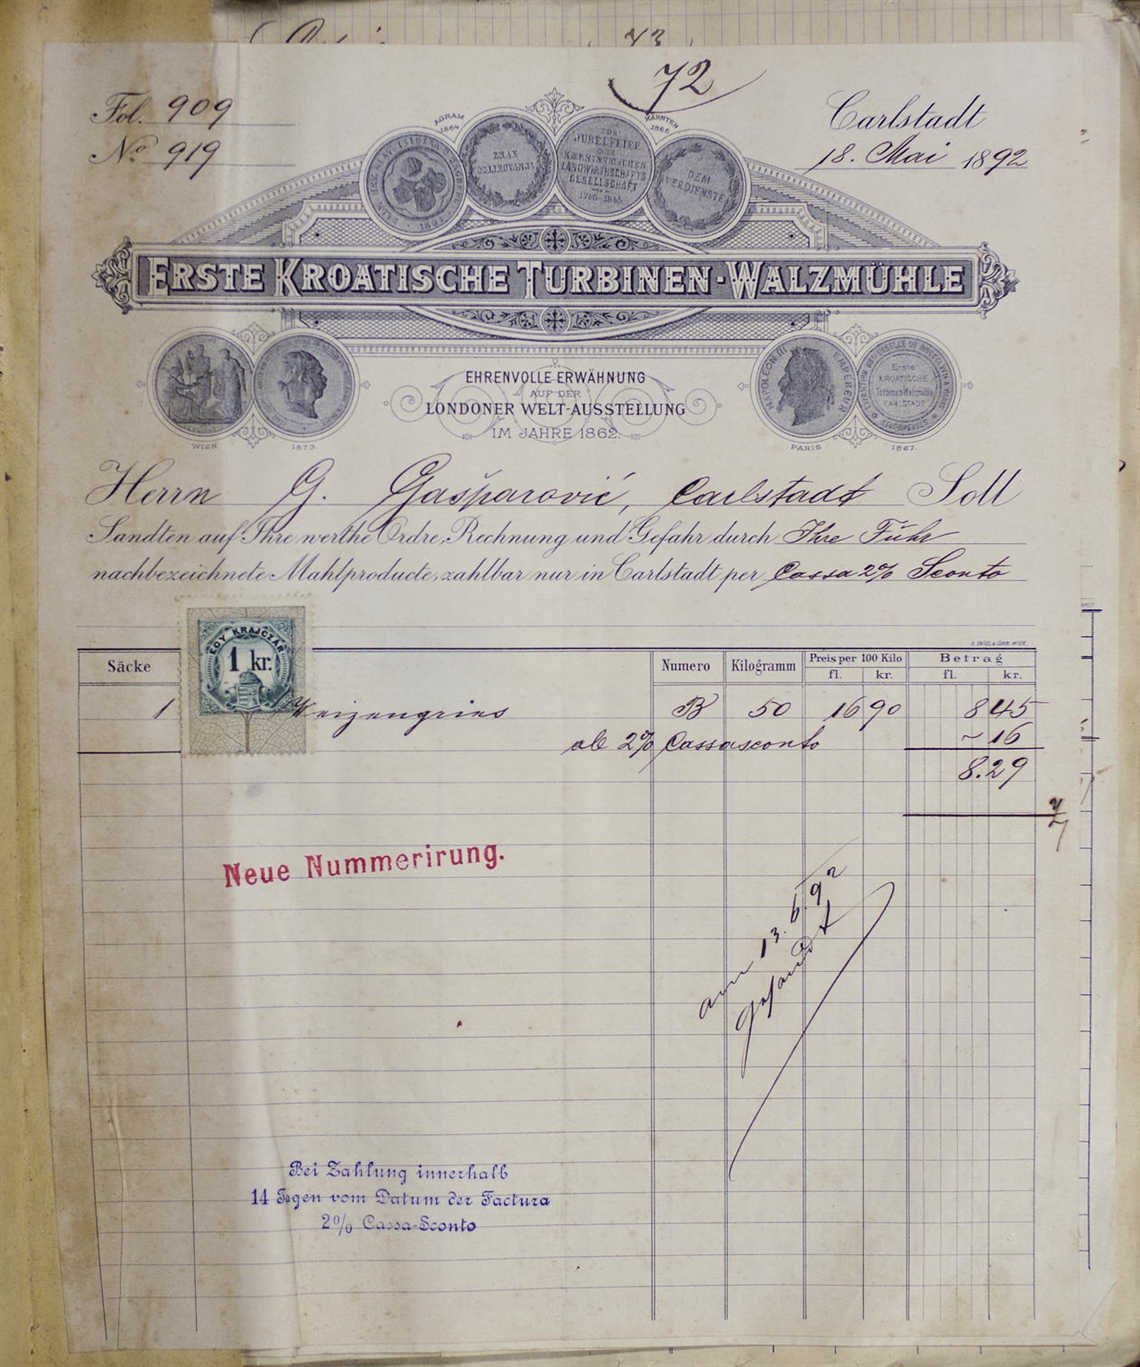 72
Fol. 909
No 919
Carlstadt
18. Mai 1892
AGRAM
1864
KÄRNTEN
1865
ZNAK
ODLIKOVANJA
ZUR
JUBELFEIER
DER
KAERNTNERISCHEN
LANDWIRTHSCHAFTS
GESELLSCHAFT
DEM
VERDIENSTE
ERSTE KROATISCHE TURBINEN-WALZMÜHLE
WIEN
1873.
EHRENVOLLE ERWÄHNUNG
AUF DER
LONDONER WELT-AUSSTELLUNG
IM JAHRE 1862.
NAPOLEON III EMPEREUR
Erste
KROATISCHE
Turbinen-Walzmühle
CARLSTADT
PARIS
1867.
Herrn G. Gašparović, Carlstadt Soll
Sandten auf Ihre werthe Ordre, Rechnung und Gefahr durch Ihre Fuhr
nachbezeichnete Mahlproducte, zahlbar nur in Carlstadt per Cassa 2% Sconto
EGY KRAJCZÁR
1 kr.
Säcke Numero Kilogramm Preis per 100 Kilo Betrag
fl. kr. fl. kr.
1 Weizengries B 50 16 90 8 45
ab 2% Cassasconto ~ 16
8.29
Neue Nummerirung.
am 13.6.92
gesandt
Bei Zahlung innerhalb
14 Tagen vom Datum der Factura
2% Cassa-Sconto